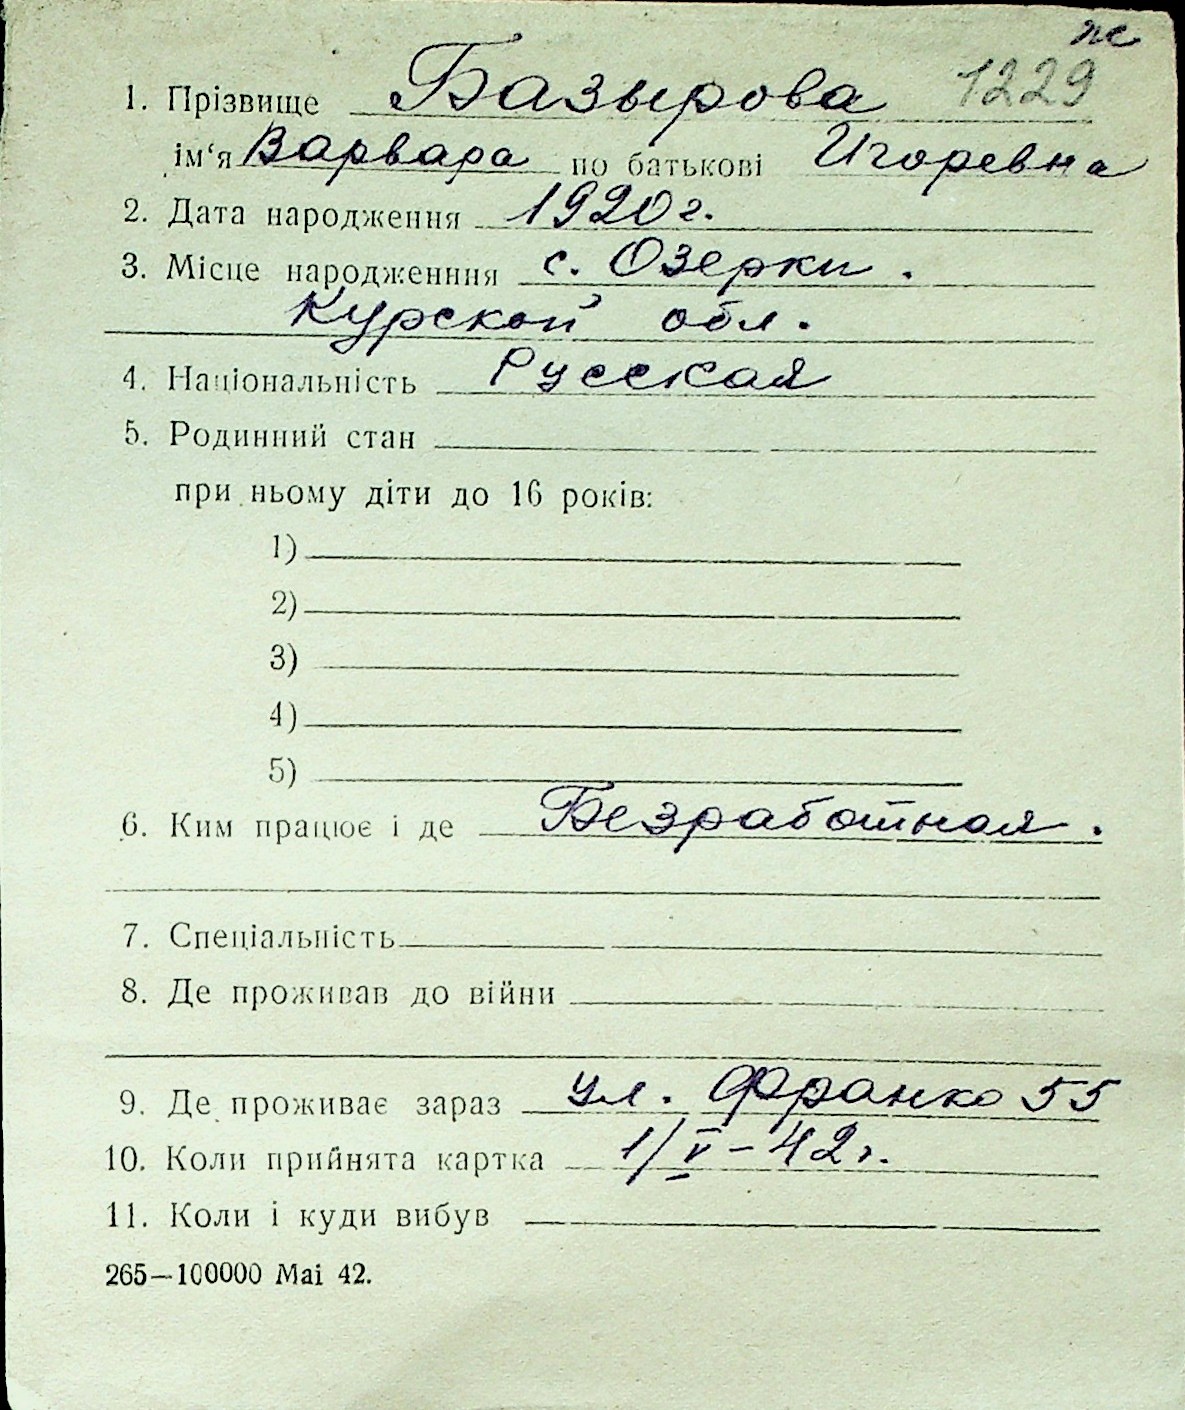 же
1229
1. Прізвище Базырова
ім‘я Варвара по батькові Игоревна
2. Дата народження 1920 г.
3. Місце народженння с. Озерки.
Курской обл.
4. Національність Русская
5. Родинний стан
при ньому діти до 16 років:
1)
2)
3)
4)
5)
6. Ким працює і де Безработная.
7. Спеціальність
8. Де проживав до війни
9. Де проживає зараз ул. Франко 55
10. Коли прийнята картка 1/V-42 г.
11. Коли і куди вибув
265—100000 Mai 42.